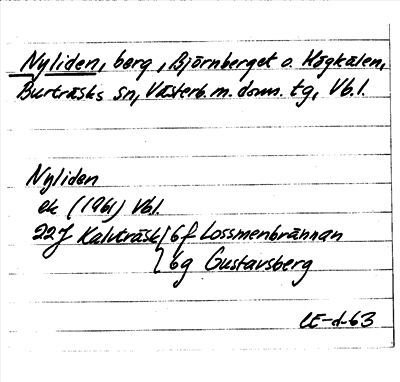 Nyliden, berg, Björnberget o. Högkälen,
Burträsks sn, Västerb. m. doms. tg, Vb. l.
Nyliden
ek (1961) Vbl.
22J Kalvträsk 6f Lossmenbrännan
6g Gustavsberg
CE-d-63